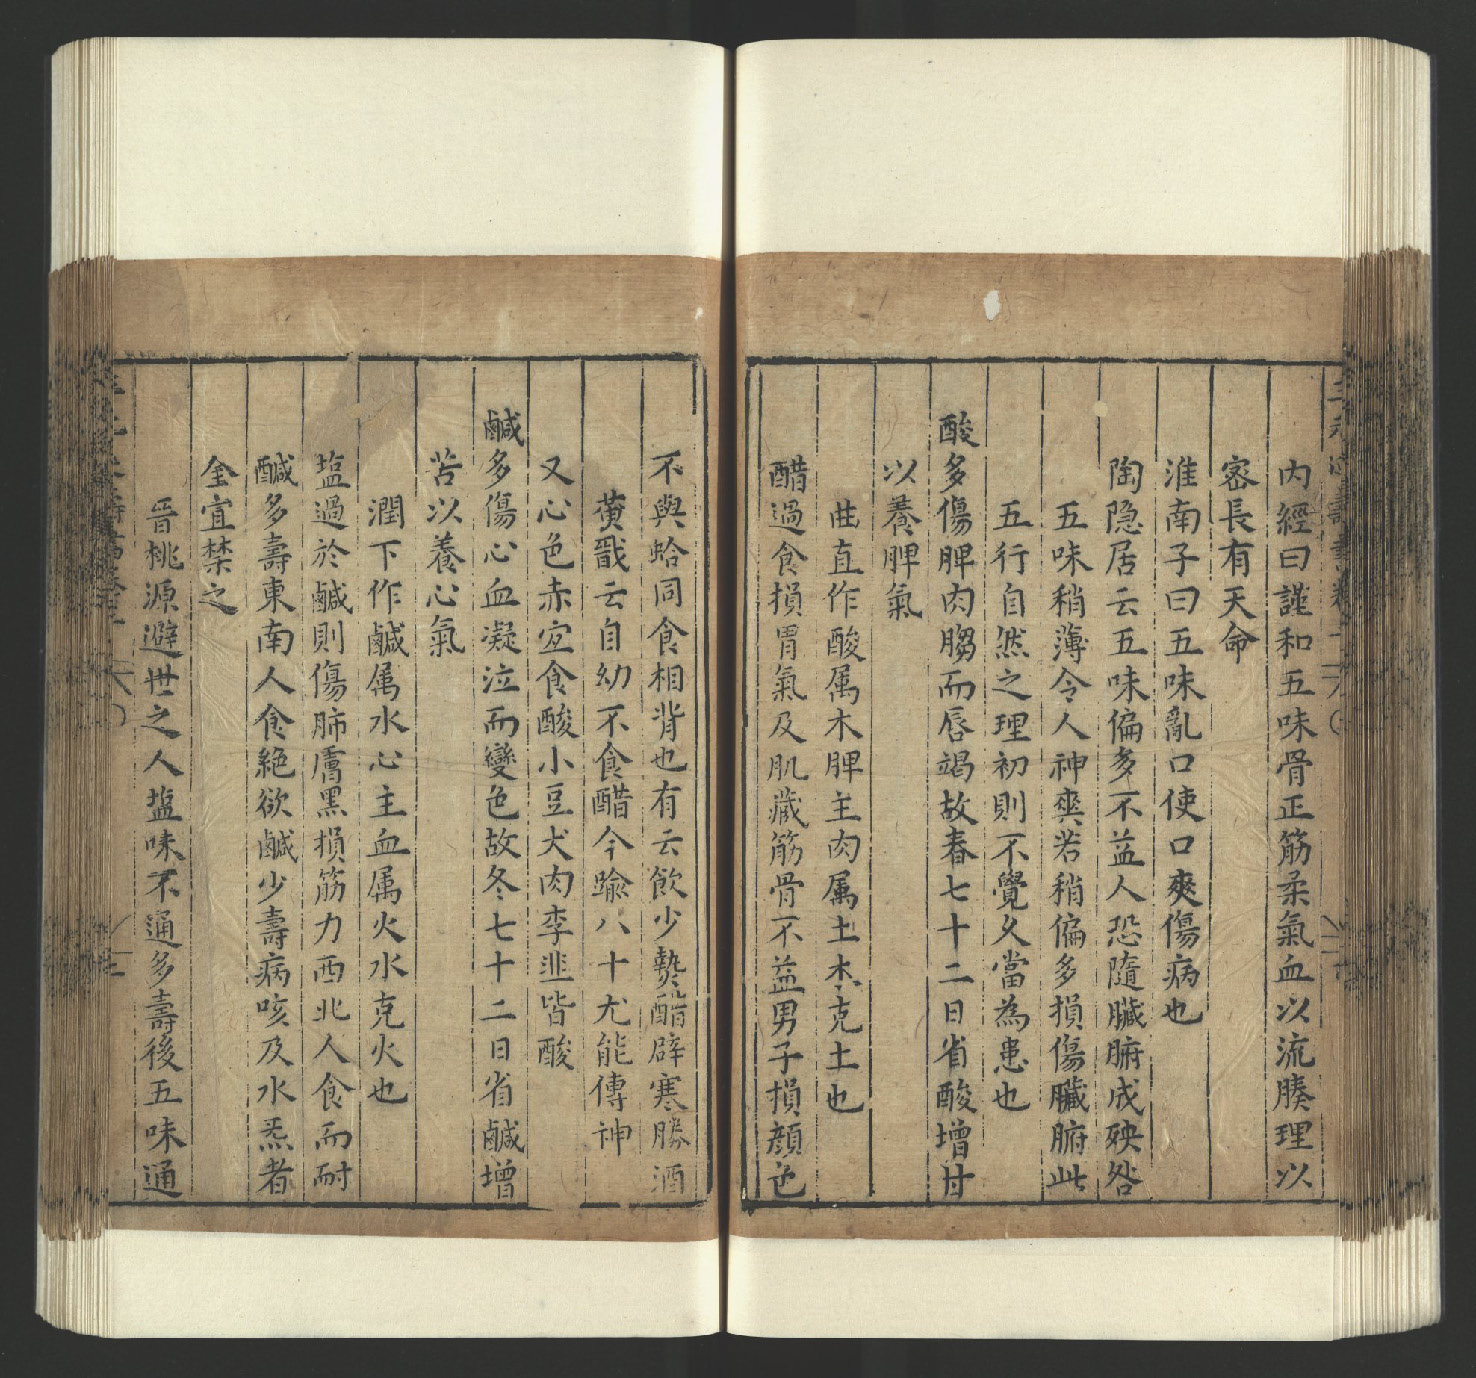 内經曰謹和五味骨正筋柔氣血以流腠理以
宻長有天命
淮南子曰五味亂口使口爽傷病也
陶隐居云五味偏多不益人恐隨臟腑成殃咎
五味稍薄令人神爽若稍偏多損傷臟腑此
五行自然之理初則不覺久當為患也
酸多傷脾肉䐢而唇竭故春七十二日省酸增甘
以養脾氣
曲直作酸属木脾主肉属土木克土也
醋過食損胃氣及肌藏筋骨不益男子損顔色
不與蛤同食相背也有云飲少熱醋辟寒勝酒
黄戬云自幼不食醋今踰八十尤能傳神
又心色赤宜食酸小豆犬肉李韭皆酸
鹹多傷心血凝泣而變色故冬七十二日省鹹增
苦以養心氣
潤下作鹹属水心主血属火水克火也
塩過於鹹則傷肺膚黑損筋力西北人食而耐
鹹多壽東南人食絶欲鹹少壽病咳及水炁者
全宜禁之
晋桃源避世之人塩味不通多壽後五味通